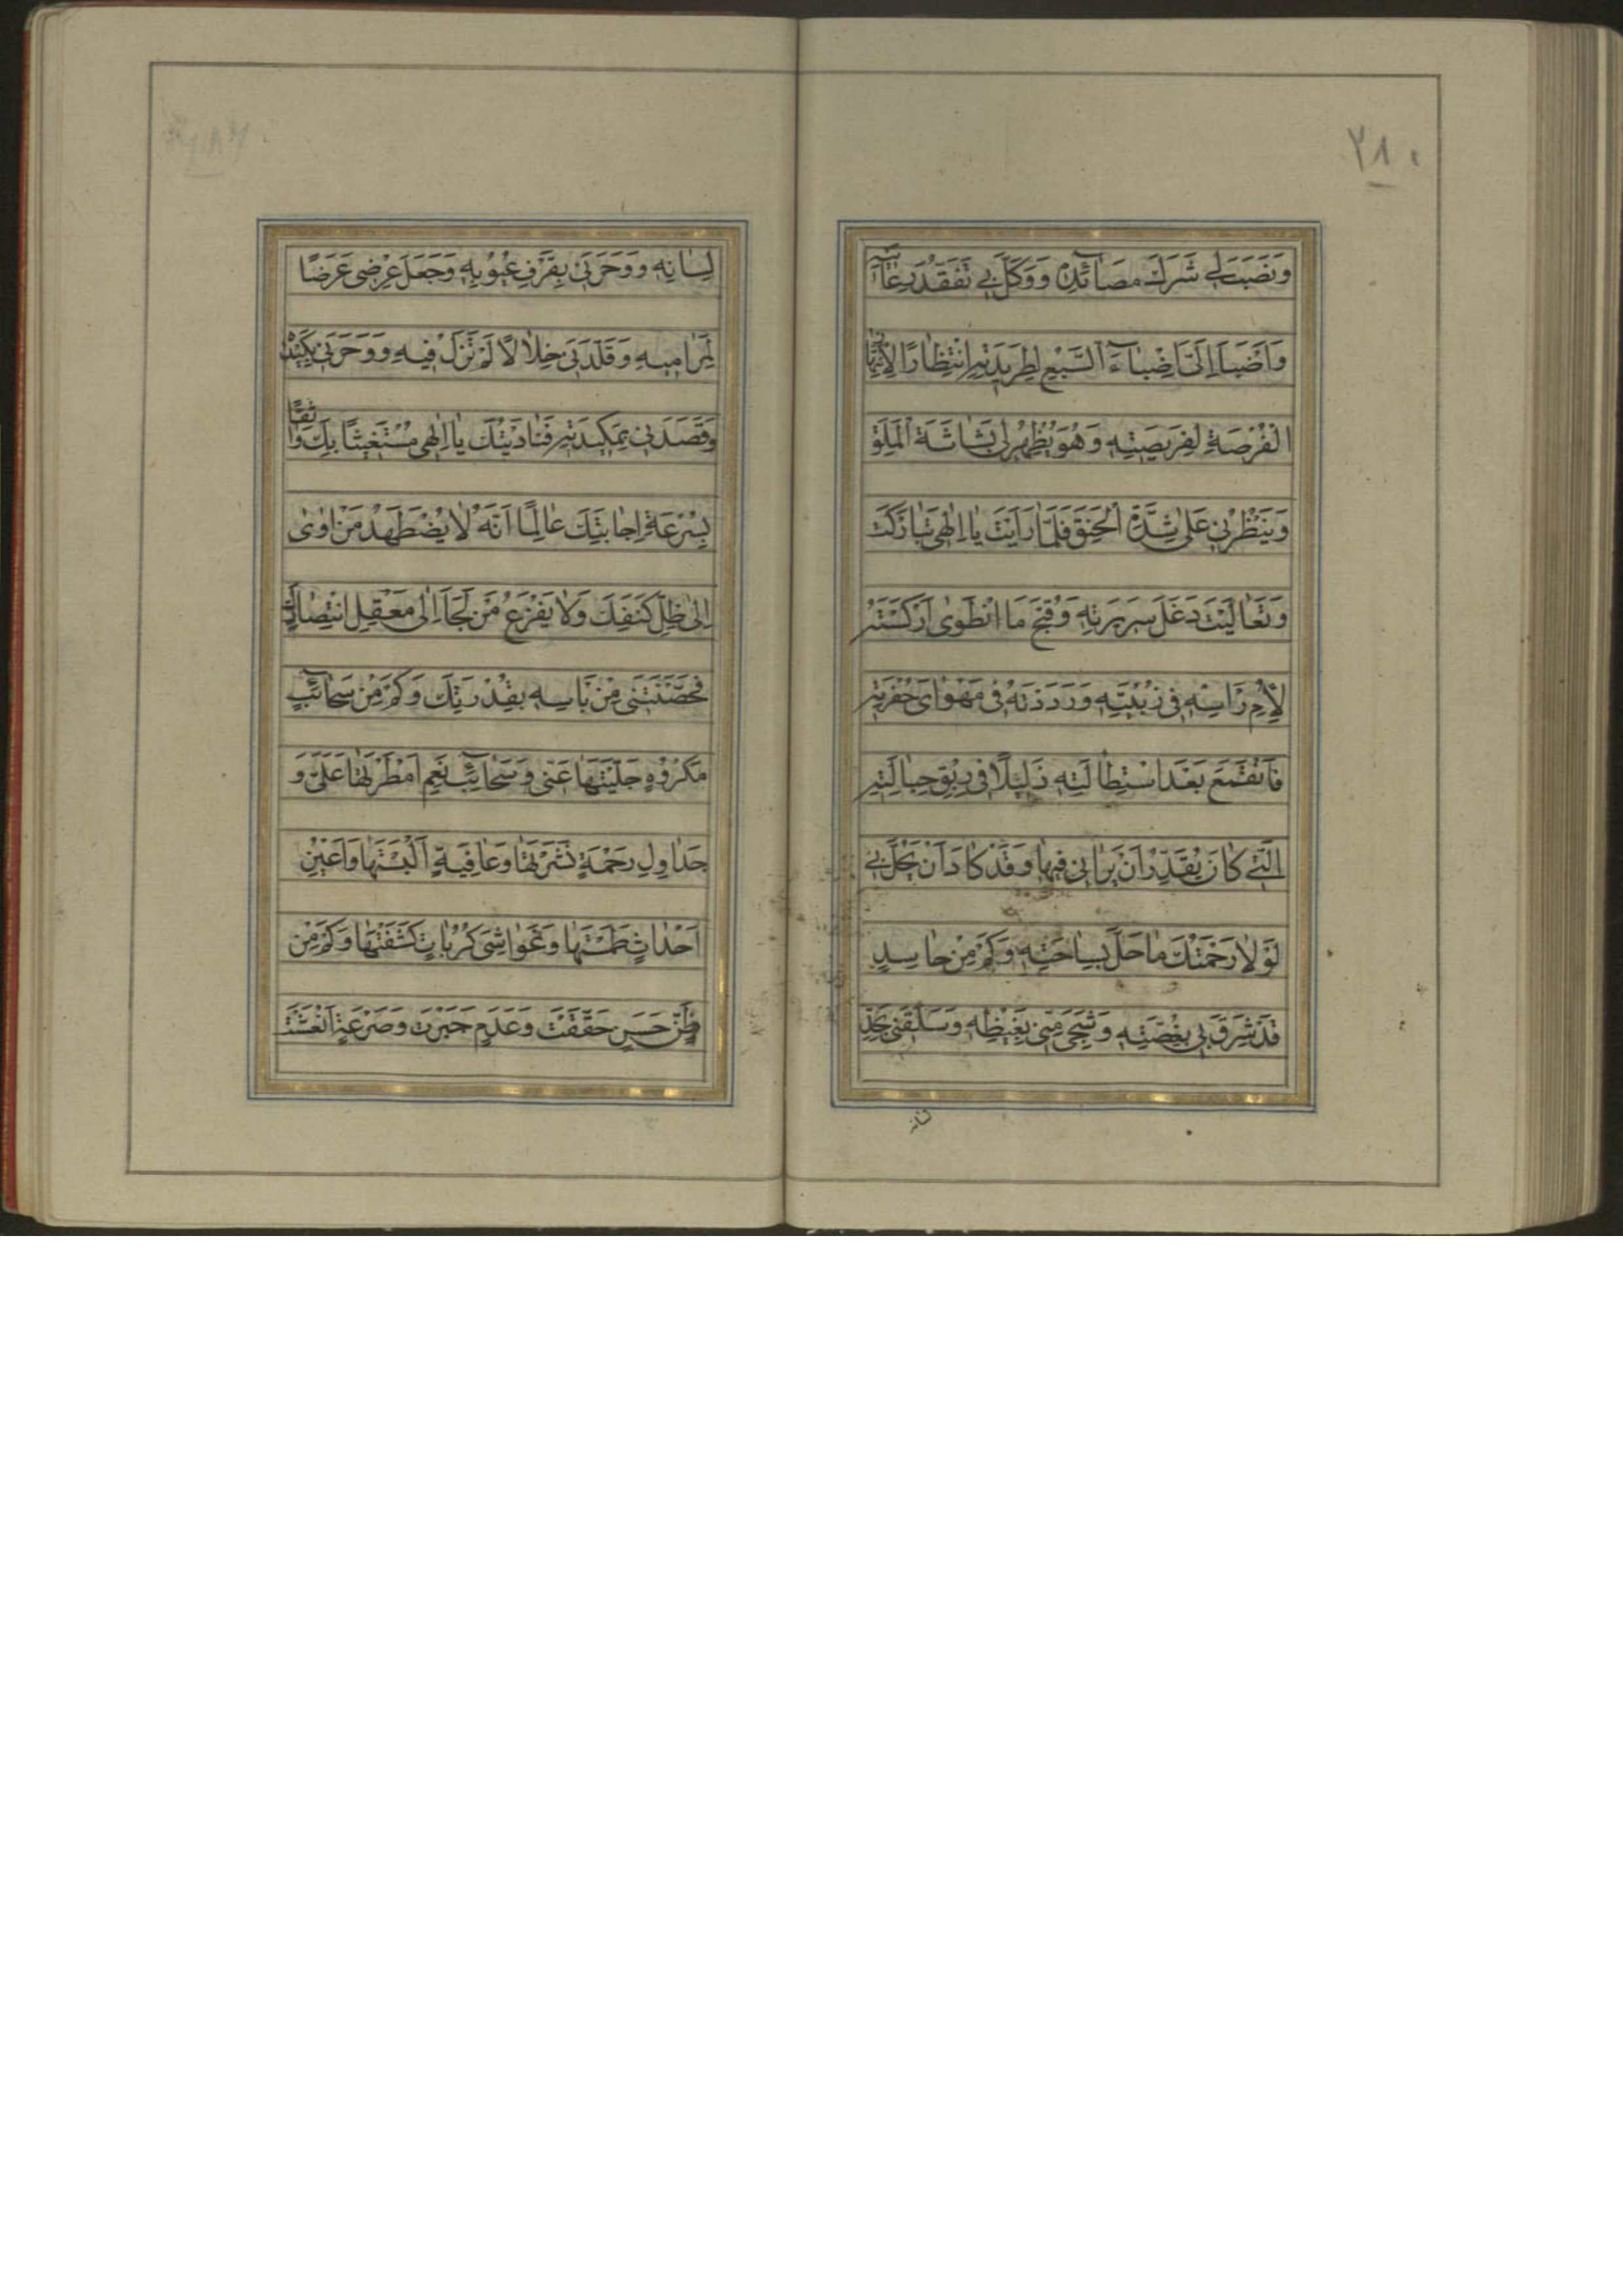 ٢٨٠
وَنَصَبَ لِي شَرَكَ مَصَائِدِهِ وَوَكَّلَ بِي تَفَقُّدَ رِعَايَتِهِ
وَاَضْبَاَ اِلَيَّ اِضْبَاءَ السَّبُعِ لِطَرِيدَتِهِ انْتِظَارًا لِانْتِهَازِ
الْفُرْصَةِ لِفَرِيصَتِهِ وَهُوَ يُظْهِرُ لِي بَشَاشَةَ الْمَلَقِ
وَيَنْظُرُنِي عَلَى شِدَّةِ الْحَنَقِ فَلَمَّا رَاَيْتَ يَا اِلٰهِي تَبَارَكْتَ
وَتَعَالَيْتَ دَغَلَ سَرِيرَتِهِ وَقُبْحَ مَا انْطَوٰى اَرْكَسْتَهُ
لِاُمِّ رَاْسِهِ فِي زُبْيَتِهِ وَرَدَدْتَهُ فِي مَهْوَاى حُفْرَتِهِ
فَانْقَمَعَ بَعْدَ اسْتِطَالَتِهِ ذَلِيلًا فِي رِبَقِ حِبَالَتِهِ
الَّتِي كَانَ يُقَدِّرُ اَنْ يَرَانِي فِيهَا وَقَدْ كَادَ اَنْ يَحُلَّ بِي
لَوْلَا رَحْمَتُكَ مَا حَلَّ بِسَاحَتِهِ وَكَمْ مِنْ حَاسِدٍ
قَدْ شَرِقَ بِي بِغُصَّتِهِ وَشَجِيَ مِنِّي بِغَيْظِهِ وَسَلَقَنِي بِحَدِّ
لِسَانِهِ وَوَحَرَنِي بِقَرْفِ عُيُوبِهِ وَجَعَلَ عِرْضِي غَرَضًا
لِمَرَامِيهِ وَقَلَّدَنِي خِلَالًا لَمْ تَزَلْ فِيهِ وَوَحَرَنِي بِكَيْدِهِ
وَقَصَدَنِي بِمَكِيدَتِهِ فَنَادَيْتُكَ يَا اِلٰهِي مُسْتَغِيثًا بِكَ وَاثِقًا
بِسُرْعَةِ اِجَابَتِكَ عَالِمًا اَنَّهُ لَا يُضْطَهَدُ مَنْ اَوٰى
اِلٰى ظِلِّ كَنَفِكَ وَلَا يَفْزَعُ مَنْ لَجَاَ اِلٰى مَعْقِلِ انْتِصَارِكَ
فَحَصَّنْتَنِي مِنْ بَاْسِهِ بِقُدْرَتِكَ وَكَمْ مِنْ سَحَائِبِ
مَكْرُوهٍ جَلَّيْتَهَا عَنِّي وَسَحَائِبِ نِعَمٍ اَمْطَرْتَهَا عَلَيَّ وَ
جَدَاوِلِ رَحْمَةٍ نَشَرْتَهَا وَعَافِيَةٍ اَلْبَسْتَهَا وَاَعْيُنِ
اَحْدَاثٍ طَمَسْتَهَا وَغَوَاشِيَ كُرُبَاتٍ كَشَفْتَهَا وَكَمْ مِنْ
ظَنٍّ حَسَنٍ حَقَّقْتَ وَعَدَمٍ جَبَرْتَ وَصَرْعَةٍ اَنْعَشْتَ